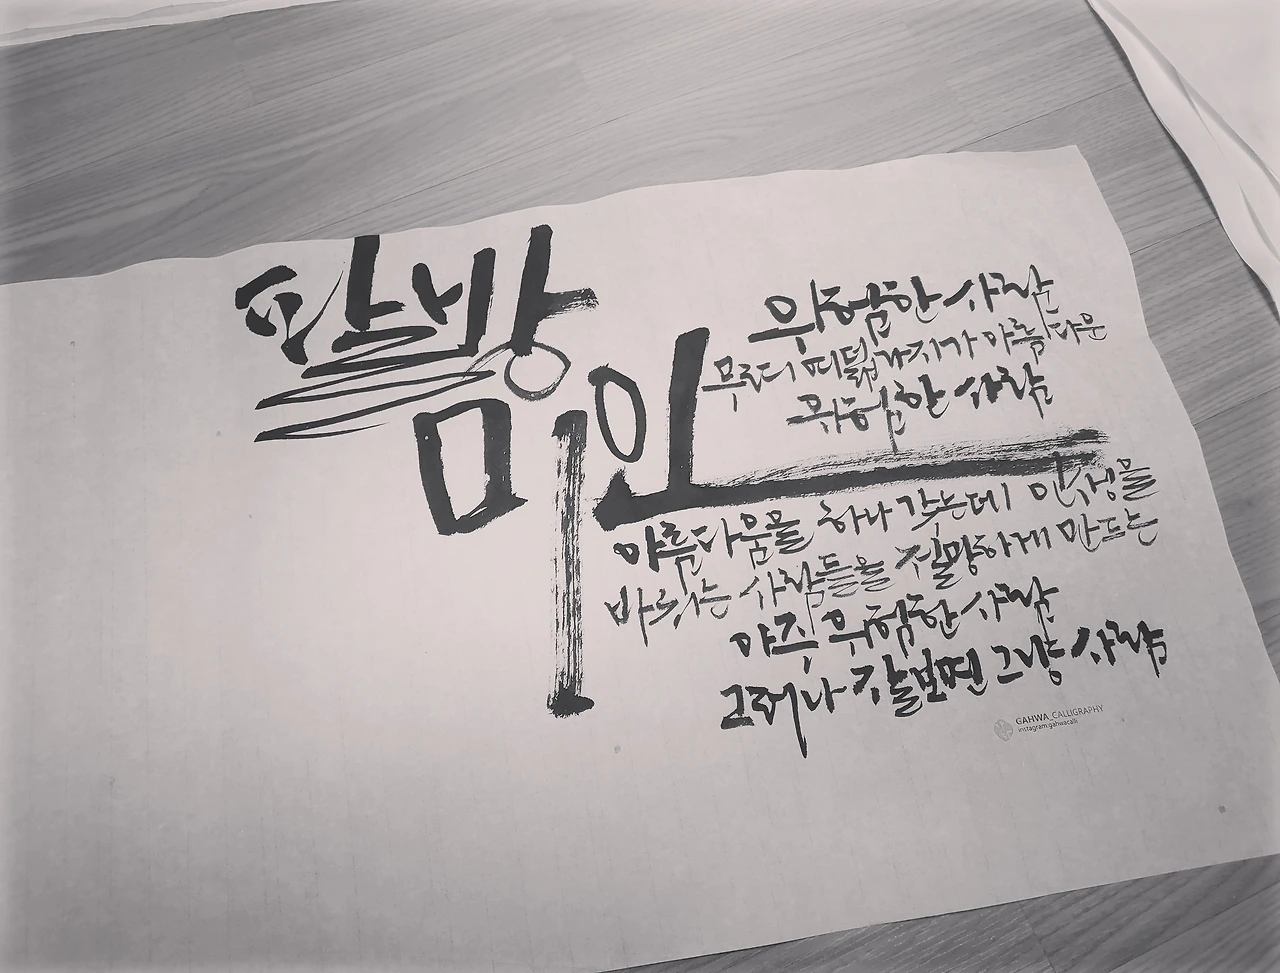 팔방
미인
위험한 사람
무려 여덟가지가 아름다운
위험한 사람
아름다움을 하나 갖는데 인생을
바치는 사람들을 절망하게 만드는
아주 위험한 사람
그러나 잘보면 그냥 사람
GAHWA_CALLIGRAPHY
instagram:gahwacalli